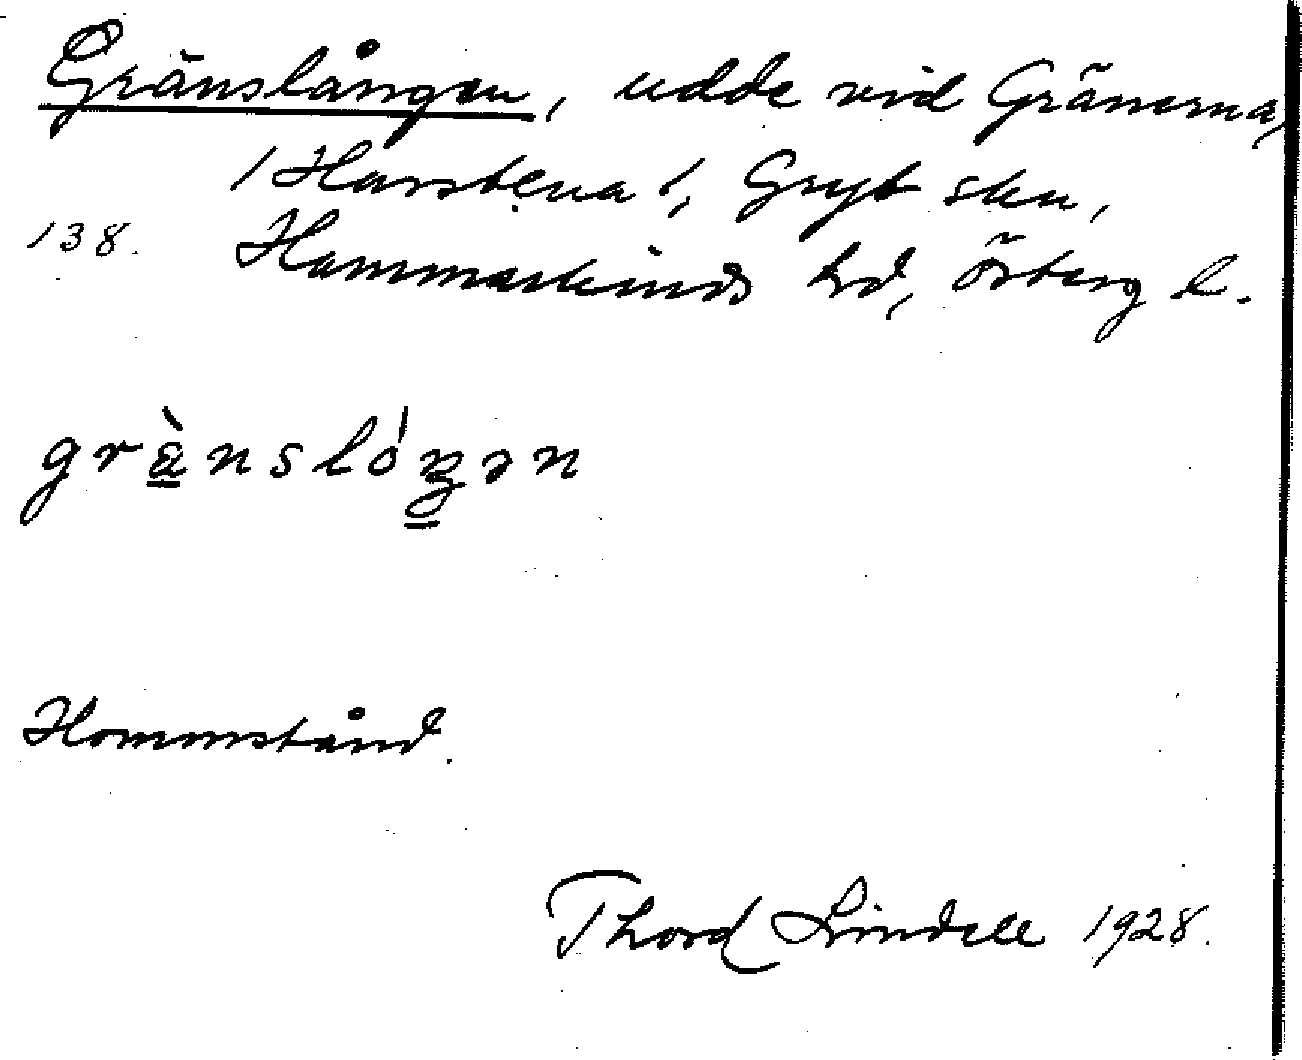 Gränslången, udde vid Gränerna,
/ Harstena /, Gryt skn,
138. Hammarkinds hd, Österg l.
grä̀nslóŋən
Hommstånd.
Thord Lindell 1928.